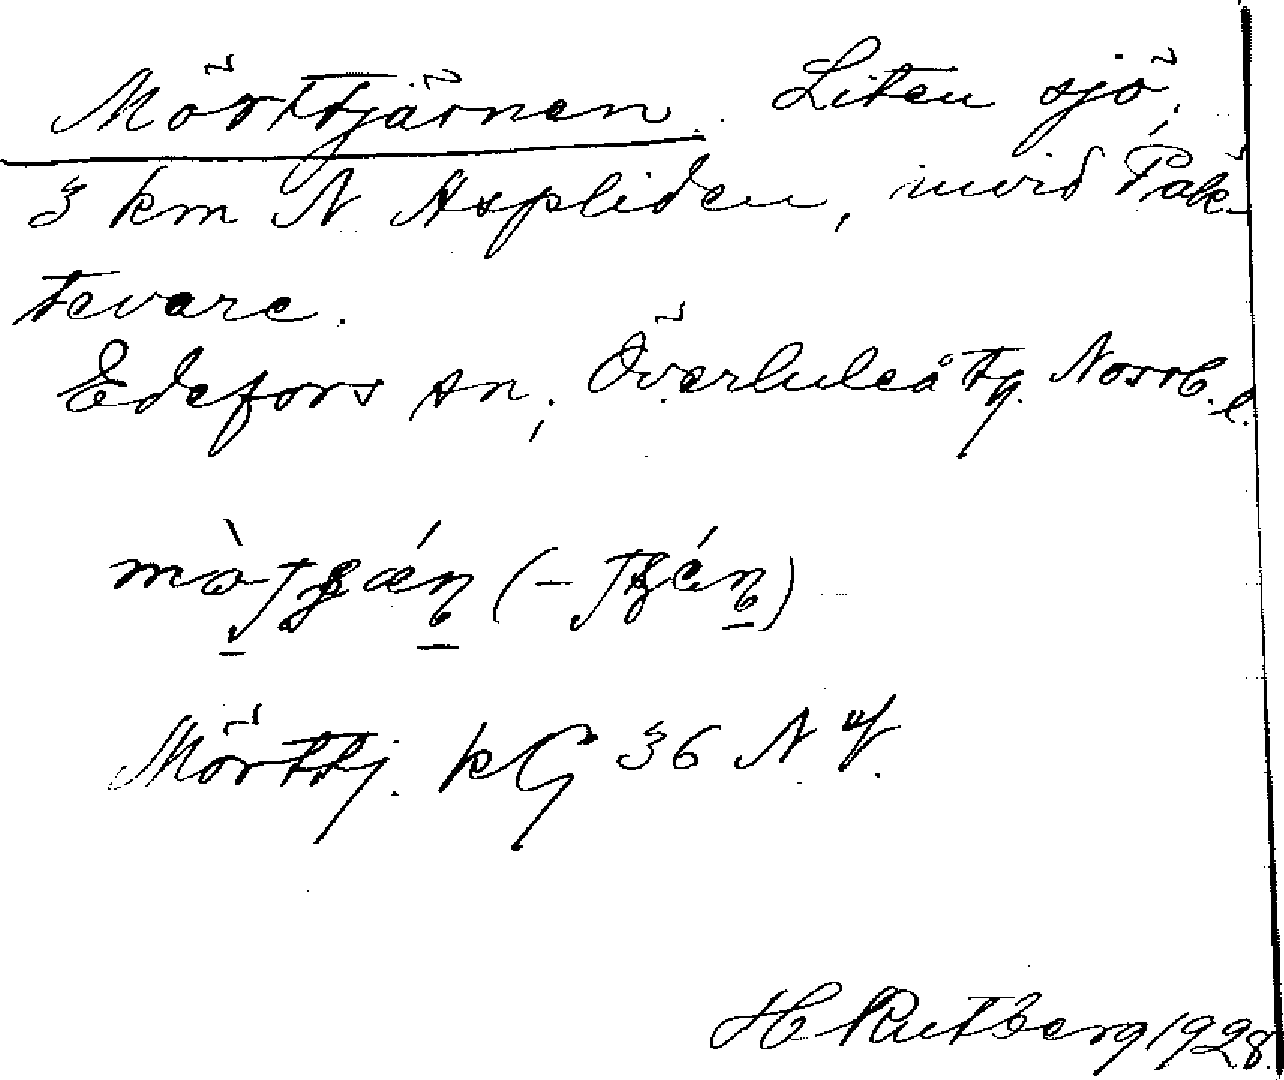 Mörttjärnen. Liten sjö,
3 km N Aspliden, invid Pak-
tevare.
Edefors sn, Överluleå tg. Norrb. l.
Mörttj. kG 36 N
H Rutberg 1928.